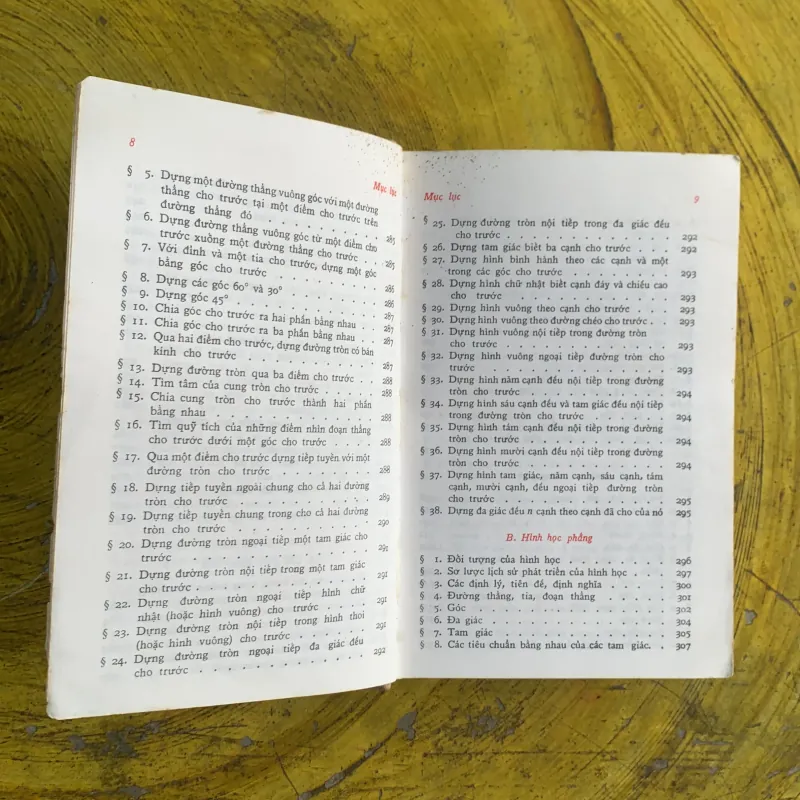 8
Mục lục
§ 5. Dựng một đường thẳng vuông góc với một đường
thẳng cho trước tại một điểm cho trước trên
đường thẳng đó . . . . . . . . . 285
§ 6. Dựng đường thẳng vuông góc từ một điểm cho
trước xuống một đường thẳng cho trước . . 285
§ 7. Với đỉnh và một tia cho trước, dựng một góc
bằng góc cho trước . . . . . . . . 286
§ 8. Dựng các góc 60° và 30° . . . . . . . 286
§ 9. Dựng góc 45° . . . . . . . . . . 287
§ 10. Chia góc cho trước ra hai phần bằng nhau . . 287
§ 11. Chia góc cho trước ra ba phần bằng nhau . . 287
§ 12. Qua hai điểm cho trước, dựng đường tròn có bán
kính cho trước . . . . . . . . . 287
§ 13. Dựng đường tròn qua ba điểm cho trước . . 288
§ 14. Tìm tâm của cung tròn cho trước . . . . . 288
§ 15. Chia cung tròn cho trước thành hai phần
bằng nhau . . . . . . . . . . . 288
§ 16. Tìm quỹ tích của những điểm nhìn đoạn thẳng
cho trước dưới một góc cho trước . . . . 288
§ 17. Qua một điểm cho trước dựng tiếp tuyến với một
đường tròn cho trước . . . . . . . 288
§ 18. Dựng tiếp tuyến ngoài chung cho cả hai đường
tròn cho trước . . . . . . . . . 289
§ 19. Dựng tiếp tuyến chung trong cho cả hai đường
tròn cho trước . . . . . . . . . 290
§ 20. Dựng đường tròn ngoại tiếp một tam giác cho
trước . . . . . . . . . . . . 291
§ 21. Dựng đường tròn nội tiếp trong một tam giác
cho trước . . . . . . . . . . . 291
§ 22. Dựng đường tròn ngoại tiếp hình chữ
nhật (hoặc hình vuông) cho trước . . . . 291
§ 23. Dựng đường tròn nội tiếp trong hình thoi
(hoặc hình vuông) cho trước . . . . . . 291
§ 24. Dựng đường tròn ngoại tiếp đa giác đều
cho trước . . . . . . . . . . . 292
Mục lục
9
§ 25. Dựng đường tròn nội tiếp trong đa giác đều
cho trước . . . . . . . . . . . 292
§ 26. Dựng tam giác biết ba cạnh cho trước . . . 292
§ 27. Dựng hình bình hành theo các cạnh và một
trong các góc cho trước . . . . . . . 293
§ 28. Dựng hình chữ nhật biết cạnh đáy và chiều cao
cho trước . . . . . . . . . . . 293
§ 29. Dựng hình vuông theo cạnh cho trước . . . 293
§ 30. Dựng hình vuông theo đường chéo cho trước . . 293
§ 31. Dựng hình vuông nội tiếp trong đường tròn
cho trước . . . . . . . . . . . 293
§ 32. Dựng hình vuông ngoại tiếp đường tròn cho
trước . . . . . . . . . . . . 293
§ 33. Dựng hình năm cạnh đều nội tiếp trong đường
tròn cho trước . . . . . . . . . 294
§ 34. Dựng hình sáu cạnh đều và tam giác đều nội tiếp
trong đường tròn cho trước . . . . . . 294
§ 35. Dựng hình tám cạnh đều nội tiếp trong đường
tròn cho trước . . . . . . . . . 294
§ 36. Dựng hình mười cạnh đều nội tiếp trong đường
tròn cho trước . . . . . . . . . 294
§ 37. Dựng hình tam giác, năm cạnh, sáu cạnh, tám
cạnh, mười cạnh, đều ngoại tiếp đường tròn
cho trước . . . . . . . . . . . 295
§ 38. Dựng đa giác đều n cạnh theo cạnh đã cho của nó 295
B. Hình học phẳng
§ 1. Đối tượng của hình học . . . . . . . 296
§ 2. Sơ lược lịch sử phát triển của hình học . . . 297
§ 3. Các định lý, tiên đề, định nghĩa . . . . . 300
§ 4. Đường thẳng, tia, đoạn thẳng . . . . . 301
§ 5. Góc . . . . . . . . . . . . 302
§ 6. Đa giác . . . . . . . . . . . 304
§ 7. Tam giác . . . . . . . . . . . 305
§ 8. Các tiêu chuẩn bằng nhau của các tam giác. . . 307